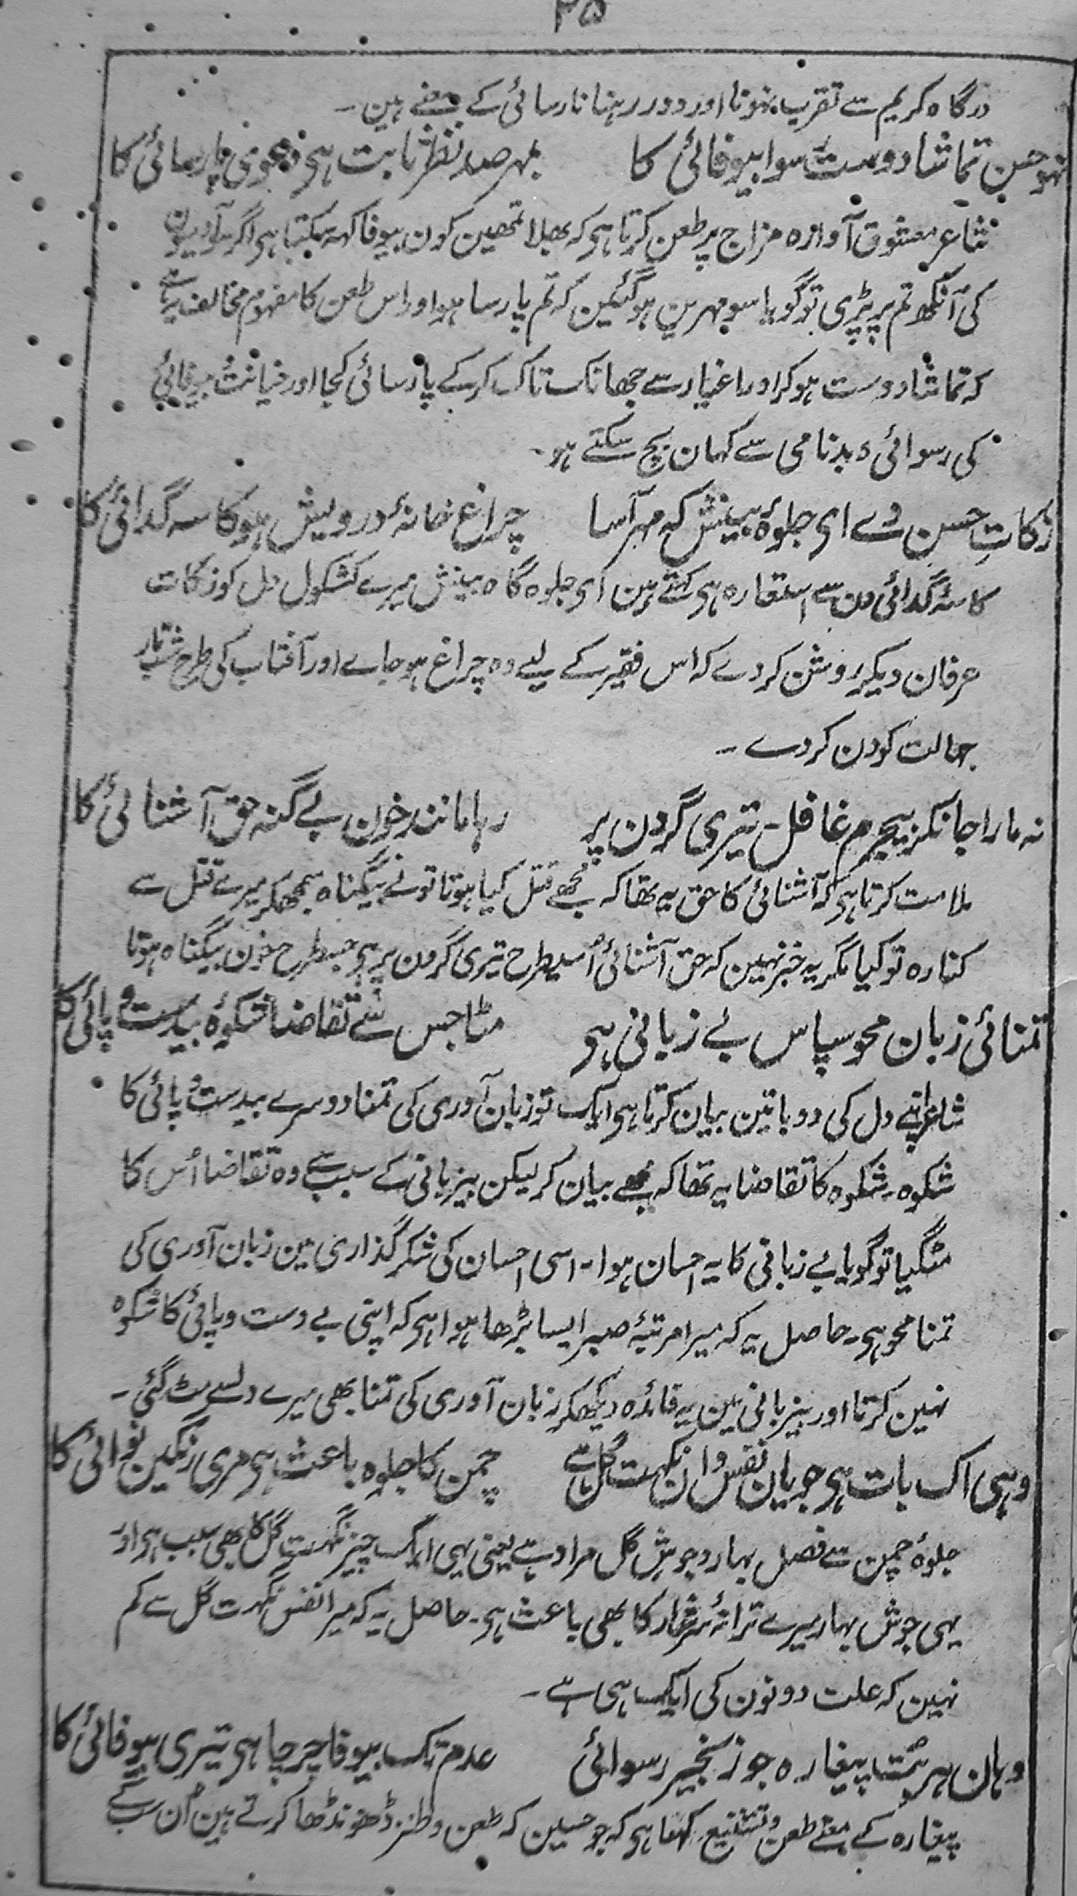 ۳۵
درگاہ کریم سے تقرب نہونا اور دور رہنا نارسائی کے معنے ہین ۔
نہو حسن تماشا دوست رسوا بیوفائی کا بمہر صد نظر ثابت ہی دعوی پارسائی کا
شاعر معشوق آوارہ مزاج پر طعن کرتا ہی کہ بھلا تمھین کون بیوفا کہہ سکتا ہی اگر سو آدمیون
کی آنکھ تم پر پڑی تو گویا سو مہرین ہو گئین کہ تم پارسا ہو اور اس طعن کا مفہوم مخالف یہ ہے
کہ تماشا دوست ہو کر اور اغیار سے جھانک تاک کر کے پارسائی کجا اور خیانت بیوفائی
کی رسوائی و بدنامی سے کہان بچ سکتے ہو ۔
زکات حسن دے ای جلوۂ بینش کہ مہر آسا چراغ خانۂ درویش ہو کاسہ گدائی کا
کاسۂ گدائی دل سے استعارہ ہی کہتے ہین ای جلوہ گاہ بینش میرے کشکول دل کو زکات
عرفان دیکر روشن کر دے کہ اس فقیر کے لیے وہ چراغ ہو جاے اور آفتاب کی طرح شب تار
جہالت کو دن کر دے ۔
نہ مارا جانکر بیجرم غافل تیری گردن پر رہا مانند خون بے گنہ حق آشنائی کا
ملامت کرتا ہی کہ آشنائی کا حق یہ تھا کہ مجھے قتل کیا ہوتا تونے بیگناہ سمجھکر میرے قتل سے
کنارہ تو کیا مگر یہ خبر نہین کہ حق آشنائی اُسیطرح تیری گردن پر ہی جسطرح خون بیگناہ ہوتا
تمنائی زبان محو سپاس بے زبانی ہی مٹا جس سے تقاضا شکوۂ بیدست و پائی کا
شاعر اپنے دل کی دو باتین بیان کرتا ہی ایک تو زبان آوری کی تمنا دوسرے بیدست و پائی کا
شکوہ ۔ شکوہ کا تقاضا یہ تھا کہ مجھے بیان کر لیکن بیزبانی کے سبب سے وہ تقاضا اُس کا
مٹ گیا تو گویا بے زبانی کا یہ احسان ہوا ۔ اسی احسان کی شکر گذاری مین زبان آوری کی
تمنا محو ہی ۔ حاصل یہ کہ میرا مرتبۂ صبر ایسا بڑھا ہوا ہی کہ اپنی بے دست و پائی کا شکوہ
نہین کرتا اور بیزبانی مین یہ فائدہ دیکھکر زبان آوری کی تمنا بھی میرے دلسے مٹ گئی ۔
وہی اک بات ہی جو یان نفس وان نکہت گل ہے چمن کا جلوہ باعث ہی مری رنگین نوائی کا
جلوۂ چمن سے فصل بہار و جوش گل مراد ہے یعنی یہی ایک چیز نکہت گل کا بھی سبب ہی اور
یہی جوش بہار میرے ترانۂ سرشار کا بھی باعث ہی ۔ حاصل یہ کہ میرا نفس نکہت گل سے کم
نہین کہ علت دونون کی ایک ہی ہے ۔
دہان ہر بت پیغارہ جو زنجیر رسوائی عدم تک بیوفا چرچا ہی تیری بیوفائی کا
پیغارہ کے معنے طعن و تشنیع کہتا ہی کہ جو حسین کہ طعن و طنز ڈھونڈھا کرتے ہین اُن سب کے